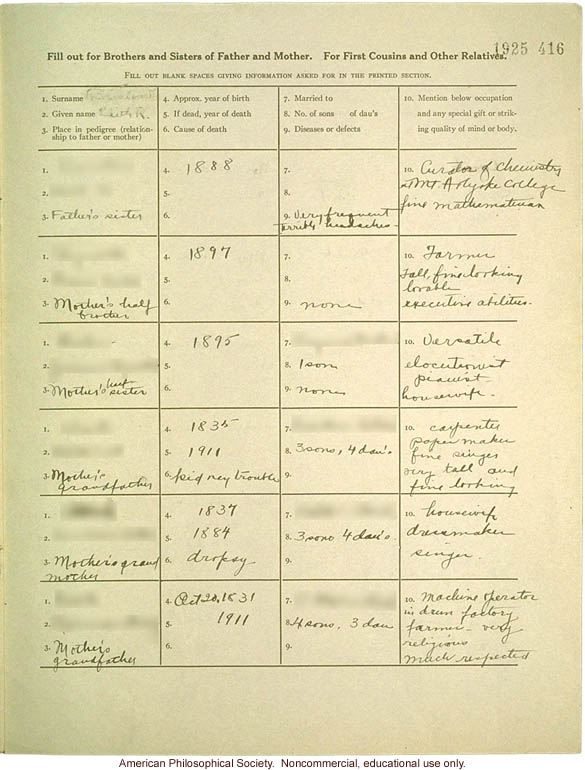 1925 416
Fill out for Brothers and Sisters of Father and Mother. For First Cousins and Other Relatives.
FILL OUT BLANK SPACES GIVING INFORMATION ASKED FOR IN THE PRINTED SECTION.
1. Surname
2. Given name
3. Place in pedigree (relation-
ship to father or mother)
4. Approx. year of birth
5. If dead, year of death
6. Cause of death
7. Married to
8. No. of sons of dau's
9. Diseases or defects
10. Mention below occupation
and any special gift or strik-
ing quality of mind or body.
1.
2.
3. Father's sister
4. 1888
5.
6.
7.
8.
9. Very frequent
terrible headaches
10. Curator of Chemistry
Mt Holyoke College
fine mathematician
1.
2.
3. Mother's half
brother
4. 1897
5.
6.
7.
8.
9. none
10. Farmer
tall, fine looking
lovable
executive abilities.
1.
2.
3. Mother's half sister
4. 1895
5.
6.
7.
8. 1 son
9. none
10. Versatile
elocutionist
pianist
housewife.
1.
2.
3. Mother's
grandfather
4. 1835
5. 1911
6. kidney trouble
7.
8. 3 sons, 4 dau's.
9.
10. carpenter
paper maker
fine singer
very tall and
fine looking
1.
2.
3. Mother's grand
mother
4. 1837
5. 1884
6. dropsy
7.
8. 3 sons 4 dau's.
9.
10. housewife
dressmaker
singer.
1.
2.
3. Mother's
grandfather
4. Oct 20, 1831
5. 1911
6.
7.
8. 4 sons, 3 dau
9.
10. Machine operator
in drum factory
farmer - very
religious
much respected
American Philosophical Society. Noncommercial, educational use only.